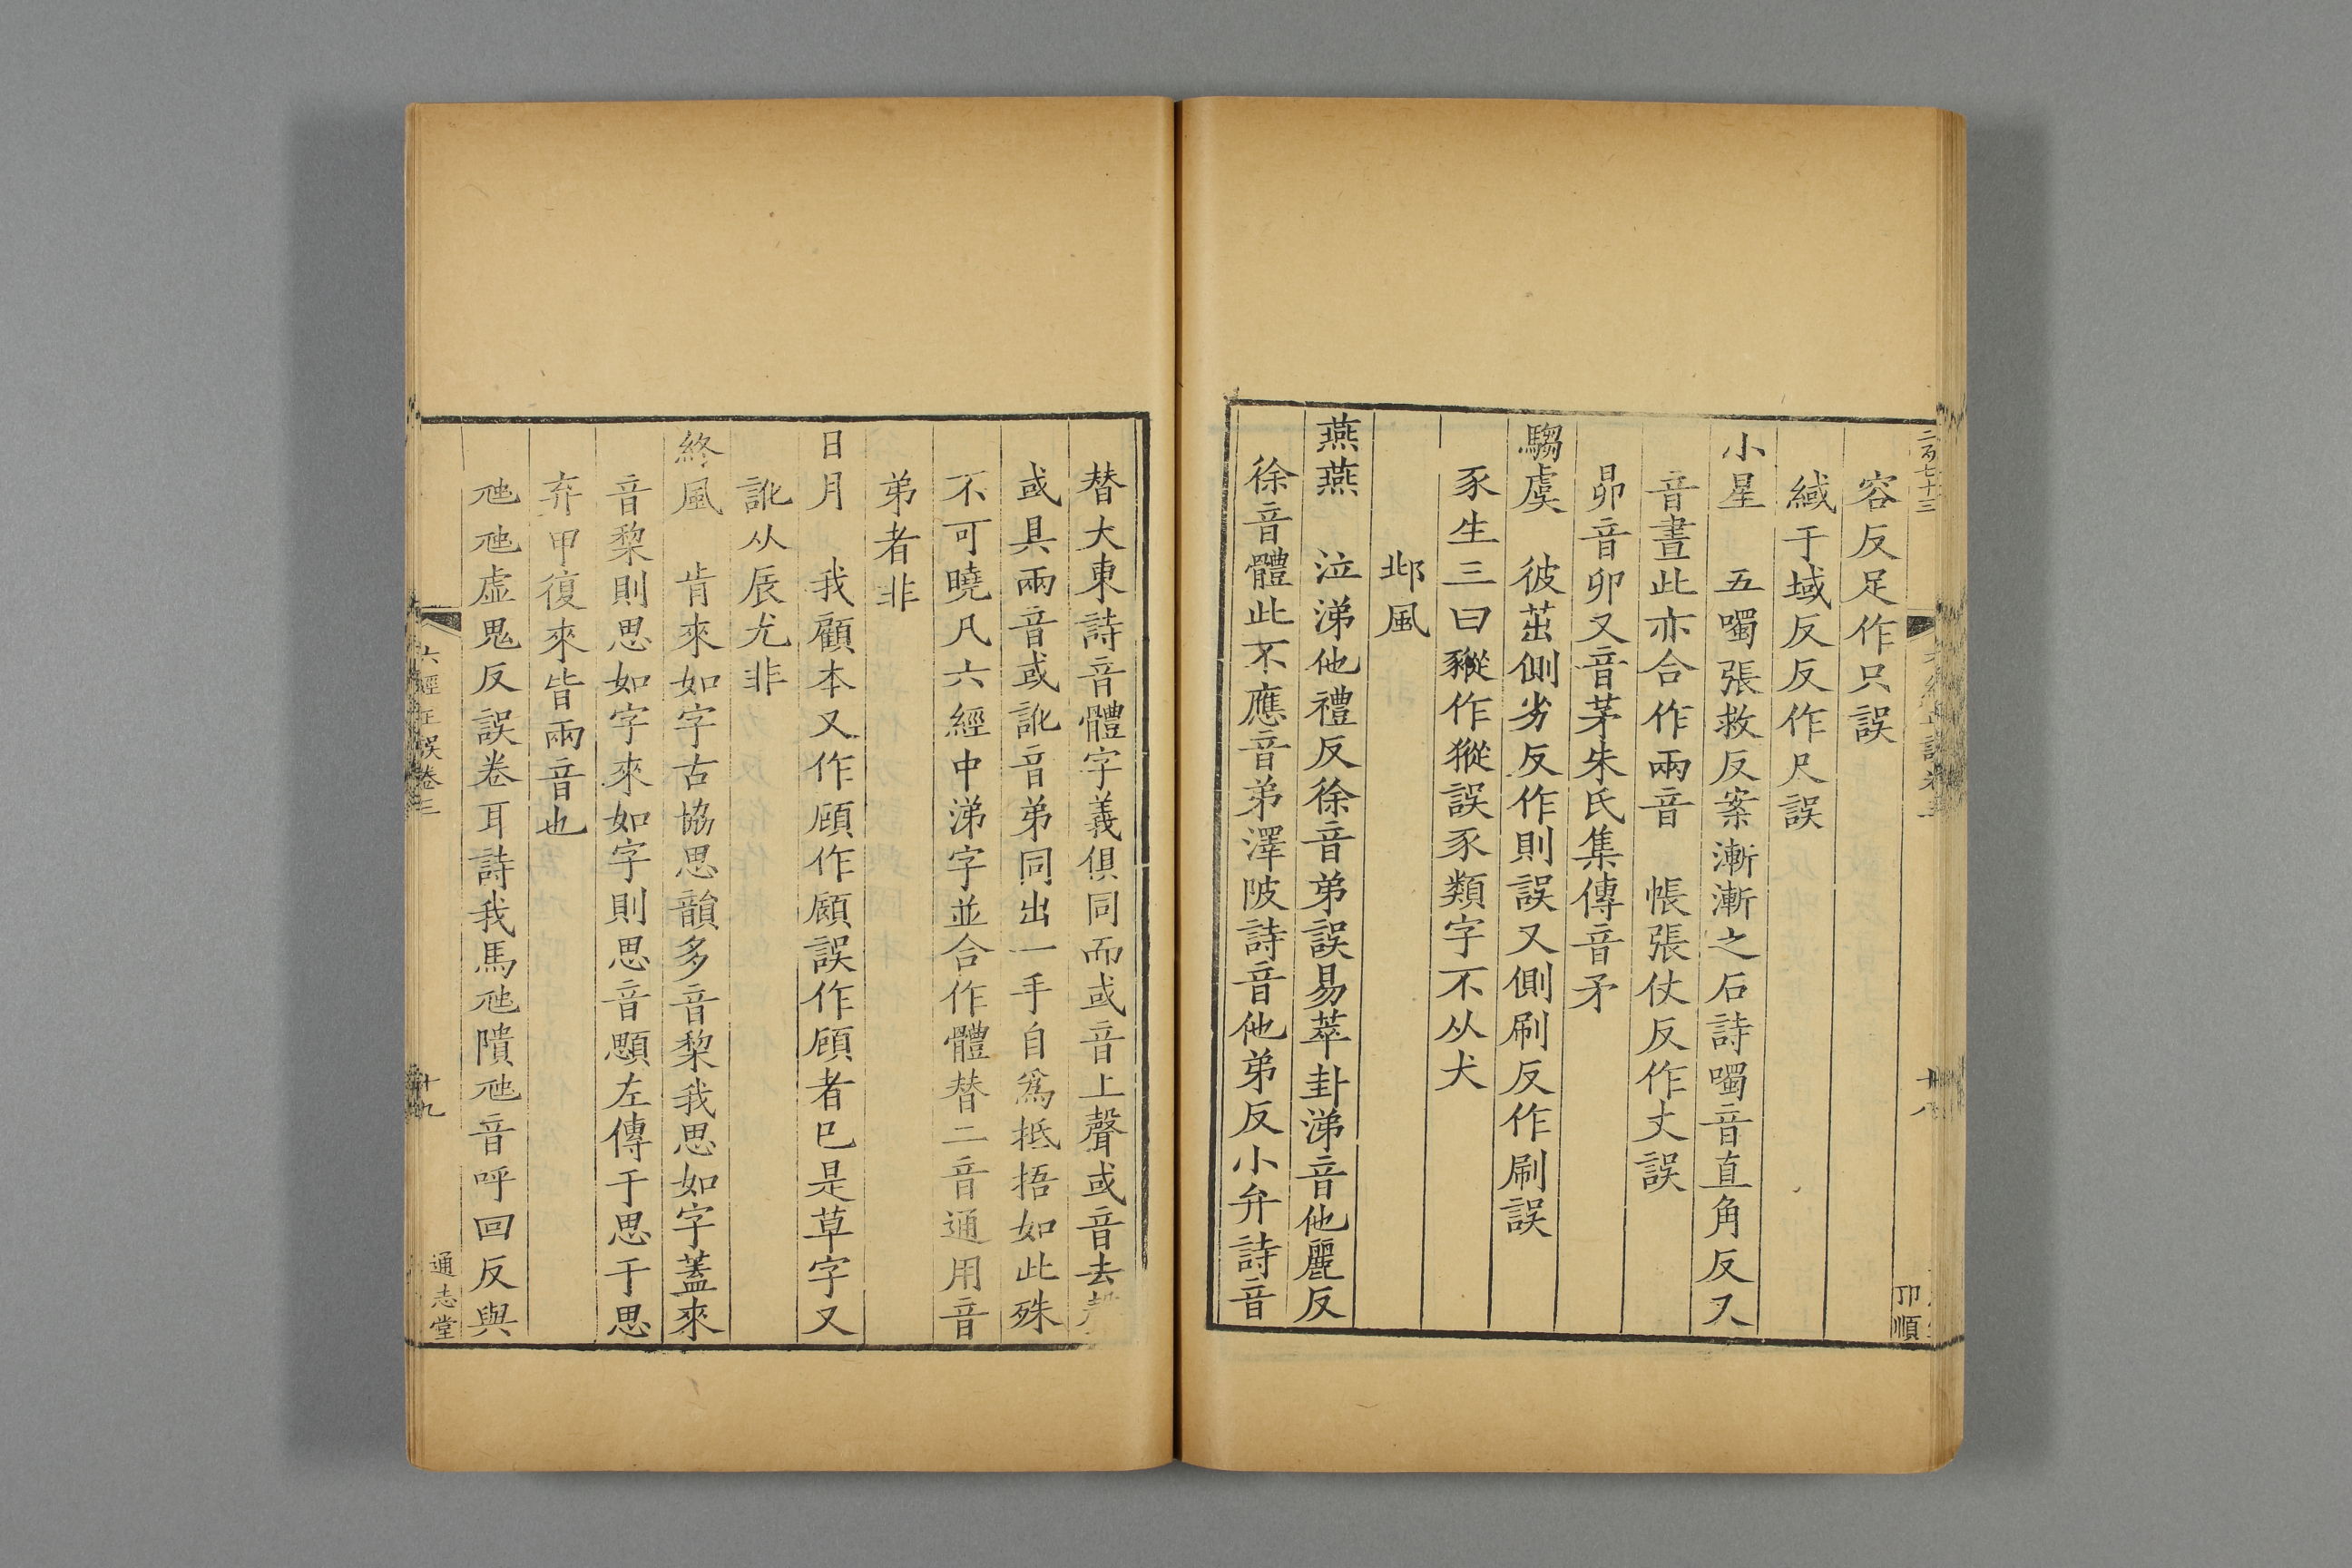 二百七十三
容反足作只誤
緎于域反反作尺誤
小星 五噣張救反案漸漸之石詩噣音直角反又
音晝此亦合作兩音 帳張仗反作丈誤
昴音卯又音茅朱氏集傳音矛
騶虞 彼茁側劣反作則誤又側刷反作刷誤
豕生三曰豵作猣誤豕類字不从犬
邶風
燕燕 泣涕他禮反徐音弟誤易萃卦涕音他麗反
徐音體此不應音弟澤陂詩音他弟反小弁詩音
替大東詩音體字義俱同而或音上聲或音去聲
或具兩音或訛音弟同出一手自爲抵捂如此殊
不可曉凡六經中涕字並合作體替二音通用音
弟者非
日月 我顧本又作頋作顧誤作頋者已是草字又
訛从辰尤非
終風 肯來如字古協思韻多音棃我思如字蓋來
音棃則思如字來如字則思音顋左傳于思于思
弃甲復來皆兩音也
虺虺虚鬼反誤卷耳詩我馬虺隤虺音呼回反與
六經正誤卷三
十九
通志堂